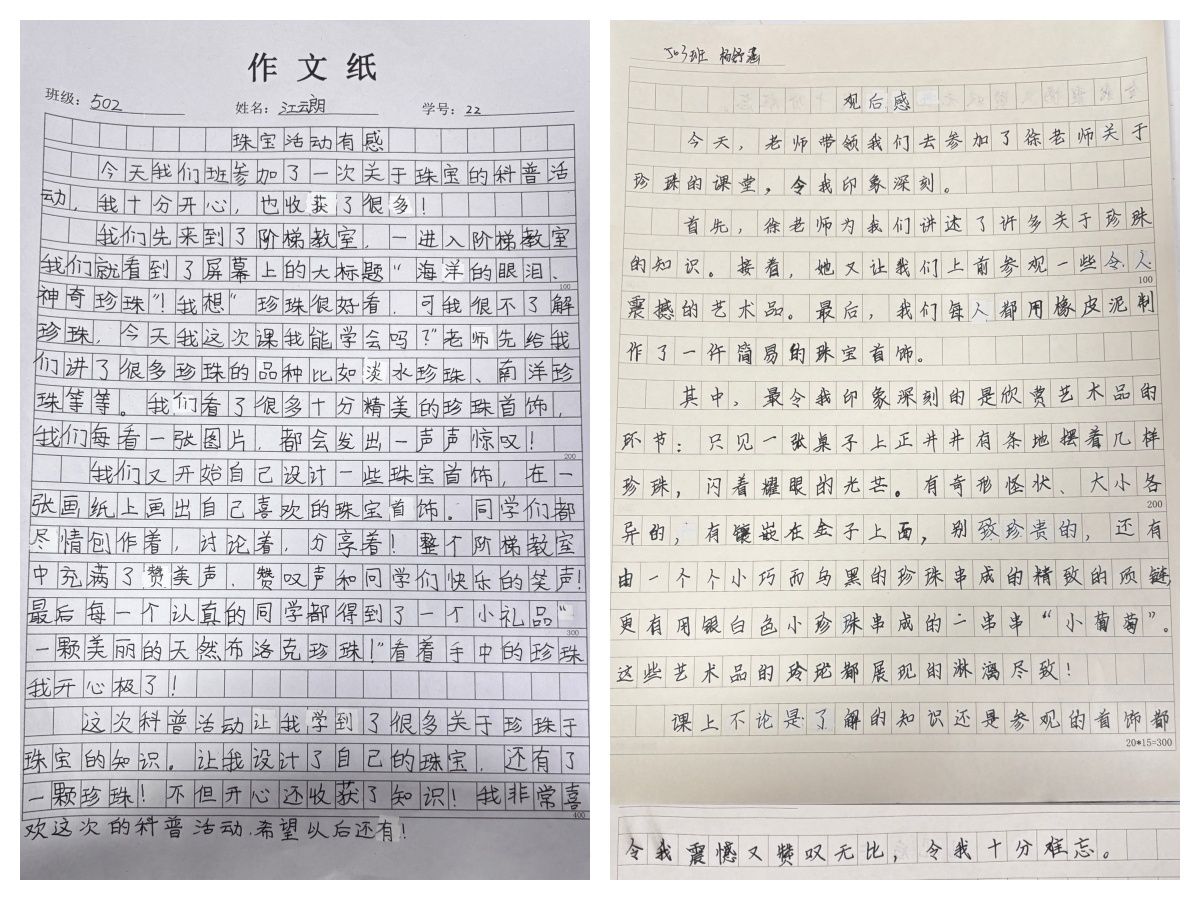 作文纸
班级：502 姓名：江云朗 学号：22
珠宝活动有感
今天我们班参加了一次关于珠宝的科普活
动，我十分开心，也收获了很多！
我们先来到了阶梯教室，一进入阶梯教室
我们就看到了屏幕上的大标题“海洋的眼泪、
100
神奇珍珠”！我想“珍珠很好看，可我很不了解
珍珠，今天我这次课我能学会吗？”老师先给我
们讲了很多珍珠的品种比如淡水珍珠、南洋珍
珠等等。我们看了很多十分精美的珍珠首饰，
我们每看一张图片，都会发出一声声惊叹！
200
我们又开始自己设计一些珠宝首饰，在一
张画纸上画出自己喜欢的珠宝首饰。同学们都
尽情创作着，讨论着，分享着！整个阶梯教室
中充满了赞美声、赞叹声和同学们快乐的笑声！
最后每一个认真的同学都得到了一个小礼品“
300
一颗美丽的天然布洛克珍珠！”看着手中的珍珠
我开心极了！
这次科普活动让我学到了很多关于珍珠于
珠宝的知识。让我设计了自己的珠宝，还有了
一颗珍珠！不但开心还收获了知识！我非常喜
400
欢这次的科普活动，希望以后还有！
503班 杨舒涵
观后感
今天，老师带领我们去参加了徐老师关于
珍珠的课堂，令我印象深刻。
首先，徐老师为我们讲述了许多关于珍珠
的知识。接着，她又让我们上前参观一些令人
100
震撼的艺术品。最后，我们每人都用橡皮泥制
作了一件简易的珠宝首饰。
其中，最令我印象深刻的是欣赏艺术品的
环节：只见一张桌子上正井井有条地摆着几样
珍珠，闪着耀眼的光芒。有奇形怪状、大小各
200
异的，有镶嵌在金子上面，别致珍贵的，还有
由一个个小巧而乌黑的珍珠串成的精致的项链，
更有用银白色小珍珠串成的二串串“小葡萄”。
这些艺术品的玲珑都展现的淋漓尽致！
课上不论是了解的知识还是参观的首饰都
20*15=300
令我震憾又赞叹无比，令我十分难忘。